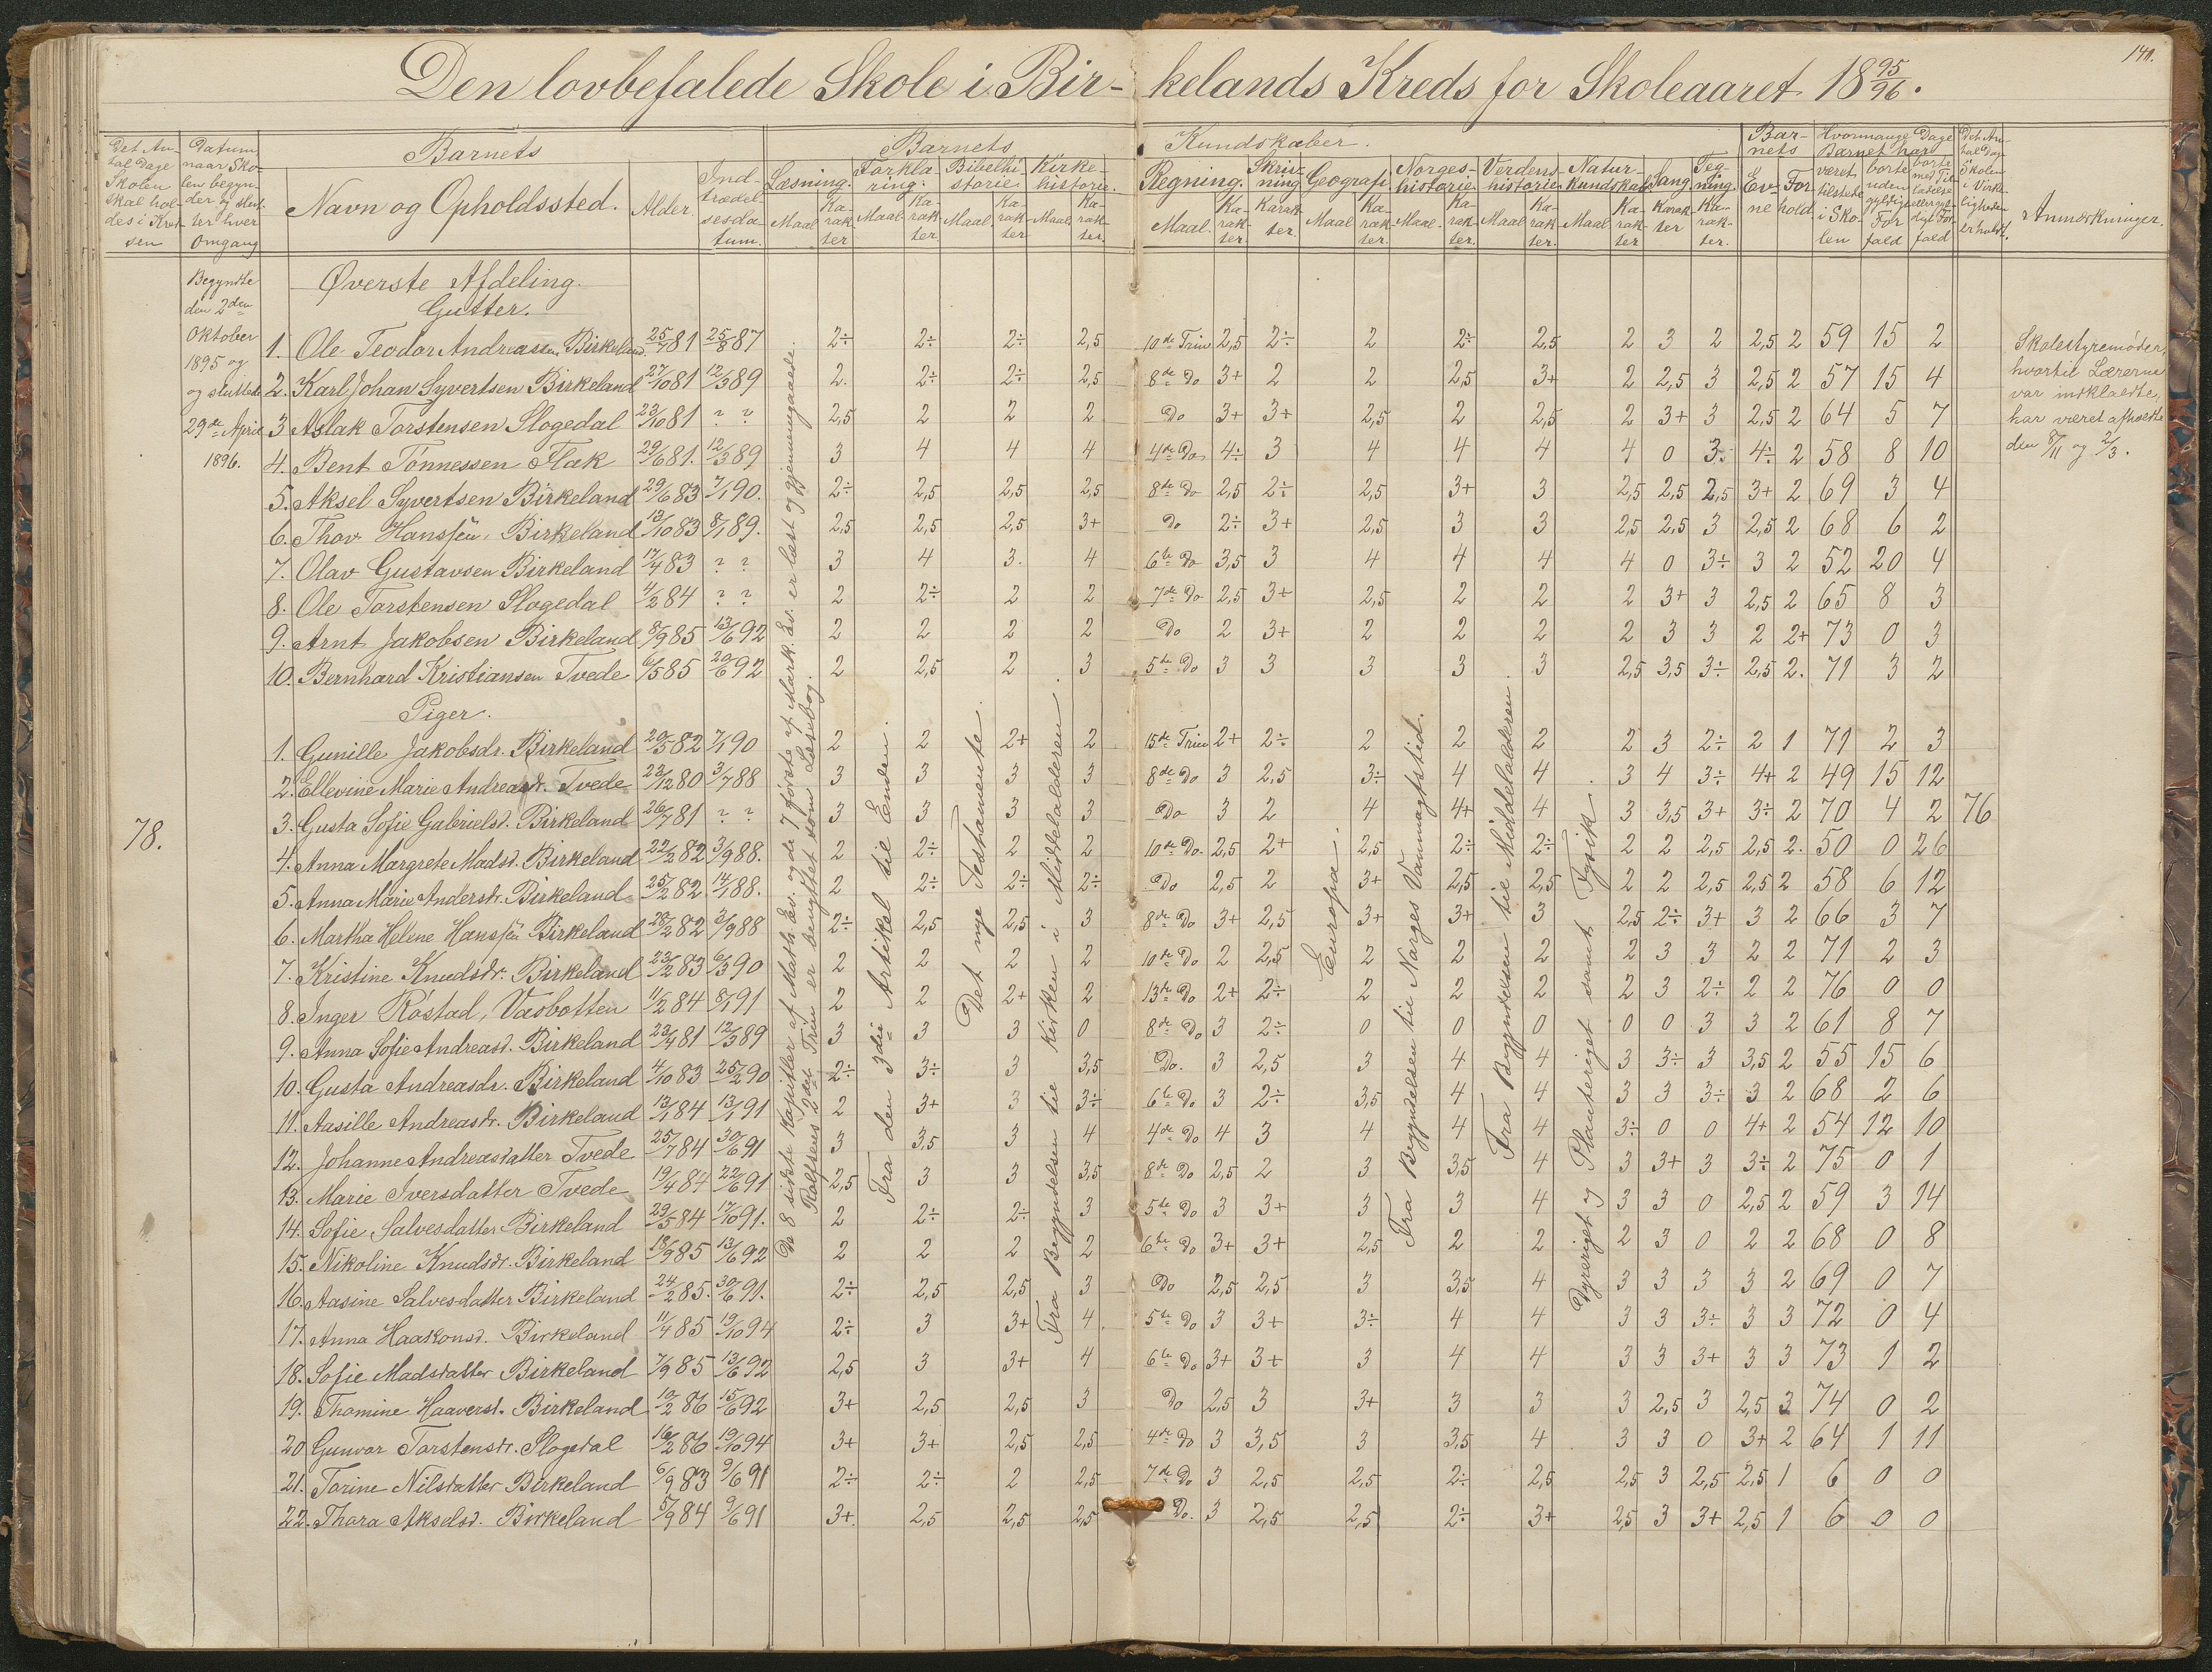 141.
Den lovbefalede Skole i Bir- kelands Kreds for Skoleaaret 18 95/96.
Det An- tal Dage Skolen skal hol- des i Kred- sen
Datum naar Sko- len begyn- der og slut- ter hver Omgang
Barnets
Navn og Opholdssted. Alder. Ind- trædel- sesda- tum.
Barnets Kundskaber.
Læsning. Maal Ka- rak- ter
Forkla- ring. Maal. Ka- rak- ter
Bibelhi- storie Maal. Ka- rak- ter
Kirke- historie. Maal. Ka- rak- ter.
Regning. Maal. Ka- rak- ter.
Skriv- ning Karak- ter
Geografi Maal Ka- rak- ter.
Norges- historie Maal. Ka- rak- ter.
Verdens- historie Maal Ka- rak- ter.
Natur- kundskab Maal Ka- rak- ter
Sang. Karak- ter
Teg- ning Ka- rak- ter.
Bar- nets Ev- ne For- hold
Hvormange Dage Barnet har været tilstede i Sko- len
borte uden gyldigt For- fald
borte med Til- ladelse eller gyl- digt For- fald
Det An- tal Dage Skolen i Virke- ligheden er holdt.
Anmærkninger.
Begyndte
den 2den
Oktober
1895 og
og sluttede
29de April
1896.
78.
Øverste Afdeling.
Gutter.
1. Ole Teodor Andreassen Birkeland 25/7 81 25/8 87 2÷ 2÷ 2÷ 2,5 10de Trin 2,5 2÷ 2 2÷ 2,5 2 3 2 2,5 2 59 15 2
2. Karl Johan Syvertsen Birkeland 27/10 81 12/3 89 2. 2÷ 2÷ 2,5 8de Do 3+ 2 2 2,5 3+ 2 2,5 3 2,5 2 57 15 4
3 Aslak Torstensen Slogedal 23/10 81 ? ? 2,5 2 2 2 Do 3+ 3+ 2,5 2 2,5 2 3+ 3 2,5 2 64 5 7
4. Bent Tønnessen Flak 29/6 81. 12/3 89 3 4 4 4 4de Do 4÷ 3 4 4 4 4 0 3÷ 4÷ 2 58 8 10
5. Aksel Syvertsen Birkeland 29/6 83 7/1 90. 2÷ 2,5 2,5 2,5 8de Do 2,5 2÷ 2,5 3+ 3 2,5 2,5 2,5 3+ 2 69 3 4
6. Thov Hanssøn, Birkeland 13/10 83 8/1 89. 2,5 2,5 2,5 3+ Do 2÷ 3+ 2,5 3 3 2,5 2,5 3 2,5 2 68 6 2
7. Olav Gustavsen Birkeland 17/4 83 ? ? 3 4 3. 4 6te Do 3,5 3 4 4 4 4 0 3÷ 3 2 52 20 4
8. Ole Torstensen Slogedal 11/2 84 ? ? 2 2÷ 2 2 7de Do 2,5 3+ 2,5 2 2 2 3+ 3 2,5 2 65 8 3
9. Arnt Jakobsen Birkeland 8/9 85 13/6 92 2 2 2 2 Do 2 3+ 2 2 2 2 3 3 2 2+ 73 0 3
10. Bernhard Kristiansen Tvede 6/5 85 20/6 92 2 2,5 2 3 5te Do 3 3 3 3 3 2,5 3,5 3÷ 2,5 2. 71 3 2
Piger.
1. Gunille Jakobsdr. Birkeland 20/5 82 7/1 90 2 2 2+ 2 15de Trin 2+ 2÷ 2 2 2 2 3 2÷ 2 1 71 2 3
2. Ellevine Marie Andreasdr. Tvede 23/12 80 3/7 88 3 3 3 3 8de Do 3 2,5 3÷ 4 4 3 4 3÷ 4+ 2 49 15 12
3. Gusta Sofie Gabrielsd. Birkeland 26/7 81 ? ? 3 3 3 3 Do 3 2 4 4+ 4 3 3,5 3+ 3÷ 2 70 4 2 76
4. Anna Margrete Madsd. Birkeland 22/2 82 3/9 88. 2 2÷ 2 2 10de Do. 2,5 2+ 2,5 2÷ 2÷ 2 2 2,5 2,5 2. 50 0 26
5. Anna Marie Andersdr. Birkeland 25/2 82. 14/1 88. 2 2÷ 2÷ 2÷ Do 2,5 2 3+ 2,5 2,5 2 2 2,5 2,5 2 58 6 12
6. Martha Helene Hanssøn Birkeland 28/2 82 3/9 88 2÷ 2,5 2,5 3 8de Do 3+ 2,5 3+ 3+ 3 2,5 2÷ 3+ 3 2 66 3 7
7. Kristine Knudsdr. Birkeland 23/2 83 6/3 90 2 2 2 2 10de Do 2 2,5 2 2 2 2 3 3 2 2 71 2 3
8. Inger Røstad, Vasbotten 11/2 84 8/1 91 2 2 2+ 2 13de Do 2+ 2÷ 2 2 2 2 3 2÷ 2 2 76 0 0
9. Anna Sofie Andreasd. Birkeland 23/4 81 12/3 89 3 3 3 0 8de Do 3 2÷ 0 0 0 0 0 3 3 2 61 8 7
10. Gusta Andreasdr. Birkeland 4/10 83 25/2 90 2÷ 3÷ 3 3,5 Do. 3 2,5 3 4 4 3 3÷ 3 3,5 2 55 15 6
11. Aasille Andreasdr. Birkeland 13/1 84 13/1 91 2 3+ 3 3÷ 6te Do 3 2÷ 3,5 4 4 3 3 3÷ 3 2 68 2 6
12. Johanne Andreasdatter Tvede 25/7 84 30/6 91 3 3,5 3 4 4de Do 4 3 4 4 4 3÷ 0 0 4+ 2 54 12 10
13. Marie Iversdatter Tvede 19/4 84 22/6 91 2,5 3 3 3,5 8de Do 2,5 2 3 3,5 4 3 3+ 3 3÷ 2 75 0 1
14. Sofie Salvesdatter Birkeland 29/5 84 17/10 91. 2 2÷ 2÷ 3 5te Do 3 3+ 3 3 4 3 3 0 2,5 2 59 3 14
15. Nikoline Knudsdr. Birkeland 18/9 85 13/6 92 2 2 2 2 6te Do 3+ 3+ 2,5 2 2 2 3 0 2 2 68 0 8
16. Aasine Salvesdatter Birkeland 24/2 85. 30/6 91. 2÷ 2,5 2,5 3 Do 2,5 2,5 3 3,5 4 3 3 3 3 2 69 0 7
17. Anna Haakonsd. Birkeland 11/4 85 19/10 94 2÷ 3 3+ 4. 5te Do 3 3+ 3÷ 4 4 3 3 3÷ 3 3 72 0 4
18. Sofie Madsdatter Birkeland 7/9 85 13/6 92 2,5 3 3+ 4 6te Do 3+ 3+ 3 4 4 3 3 3+ 3 3 73 1 2
19. Thomine Haaversd. Birkeland 10/2 86 15/6 92 3+ 2,5 2,5 3 Do 2,5 3 3+ 3 3 3 2,5 3 2,5 3 74 0 2
20 Gunvor Torstensdr. Slogedal 16/2 86 19/10 94 3+ 3+ 2,5 2,5 4de Do 3 3,5 3 3,5 4 3 3 0 3+ 2 64 1 11
21. Torine Nilsdatter Birkeland 6/9 83 9/6 91 2÷ 2÷ 2 2,5 7de Do 3 2,5 2,5 2÷ 2,5 2,5 3 2,5 2,5 1 6 0 0
22. Thora Akselsd. Birkeland 5/9 84 9/6 91 3+ 2,5 2,5 2,5 Do. 3 2,5 2,5 2÷ 3+ 2,5 3 3+ 2,5 1 6 0 0
De 8 sidste Kapitler af Math. Ev. og de 7 første af Mark. Ev. er læst og gjennemgaaede.
Rolfsens 2det Trin er benyttet som Læsebog.
Fra den 3die Artikel til Enden.
Det nye Testamente.
Fra Begyndelsen til Kirken i Middelalderen.
Europa.
Fra Begyndelsen til Norges Vanmagtstid.
Fra Begyndelsen til Middelalderen.
Dyreriget og Planteriget samt Fysik.
Skolestyremøder,
hvortil Lærerne
var indkaldte,
har været afholdte
den 8/11 og 2/3.